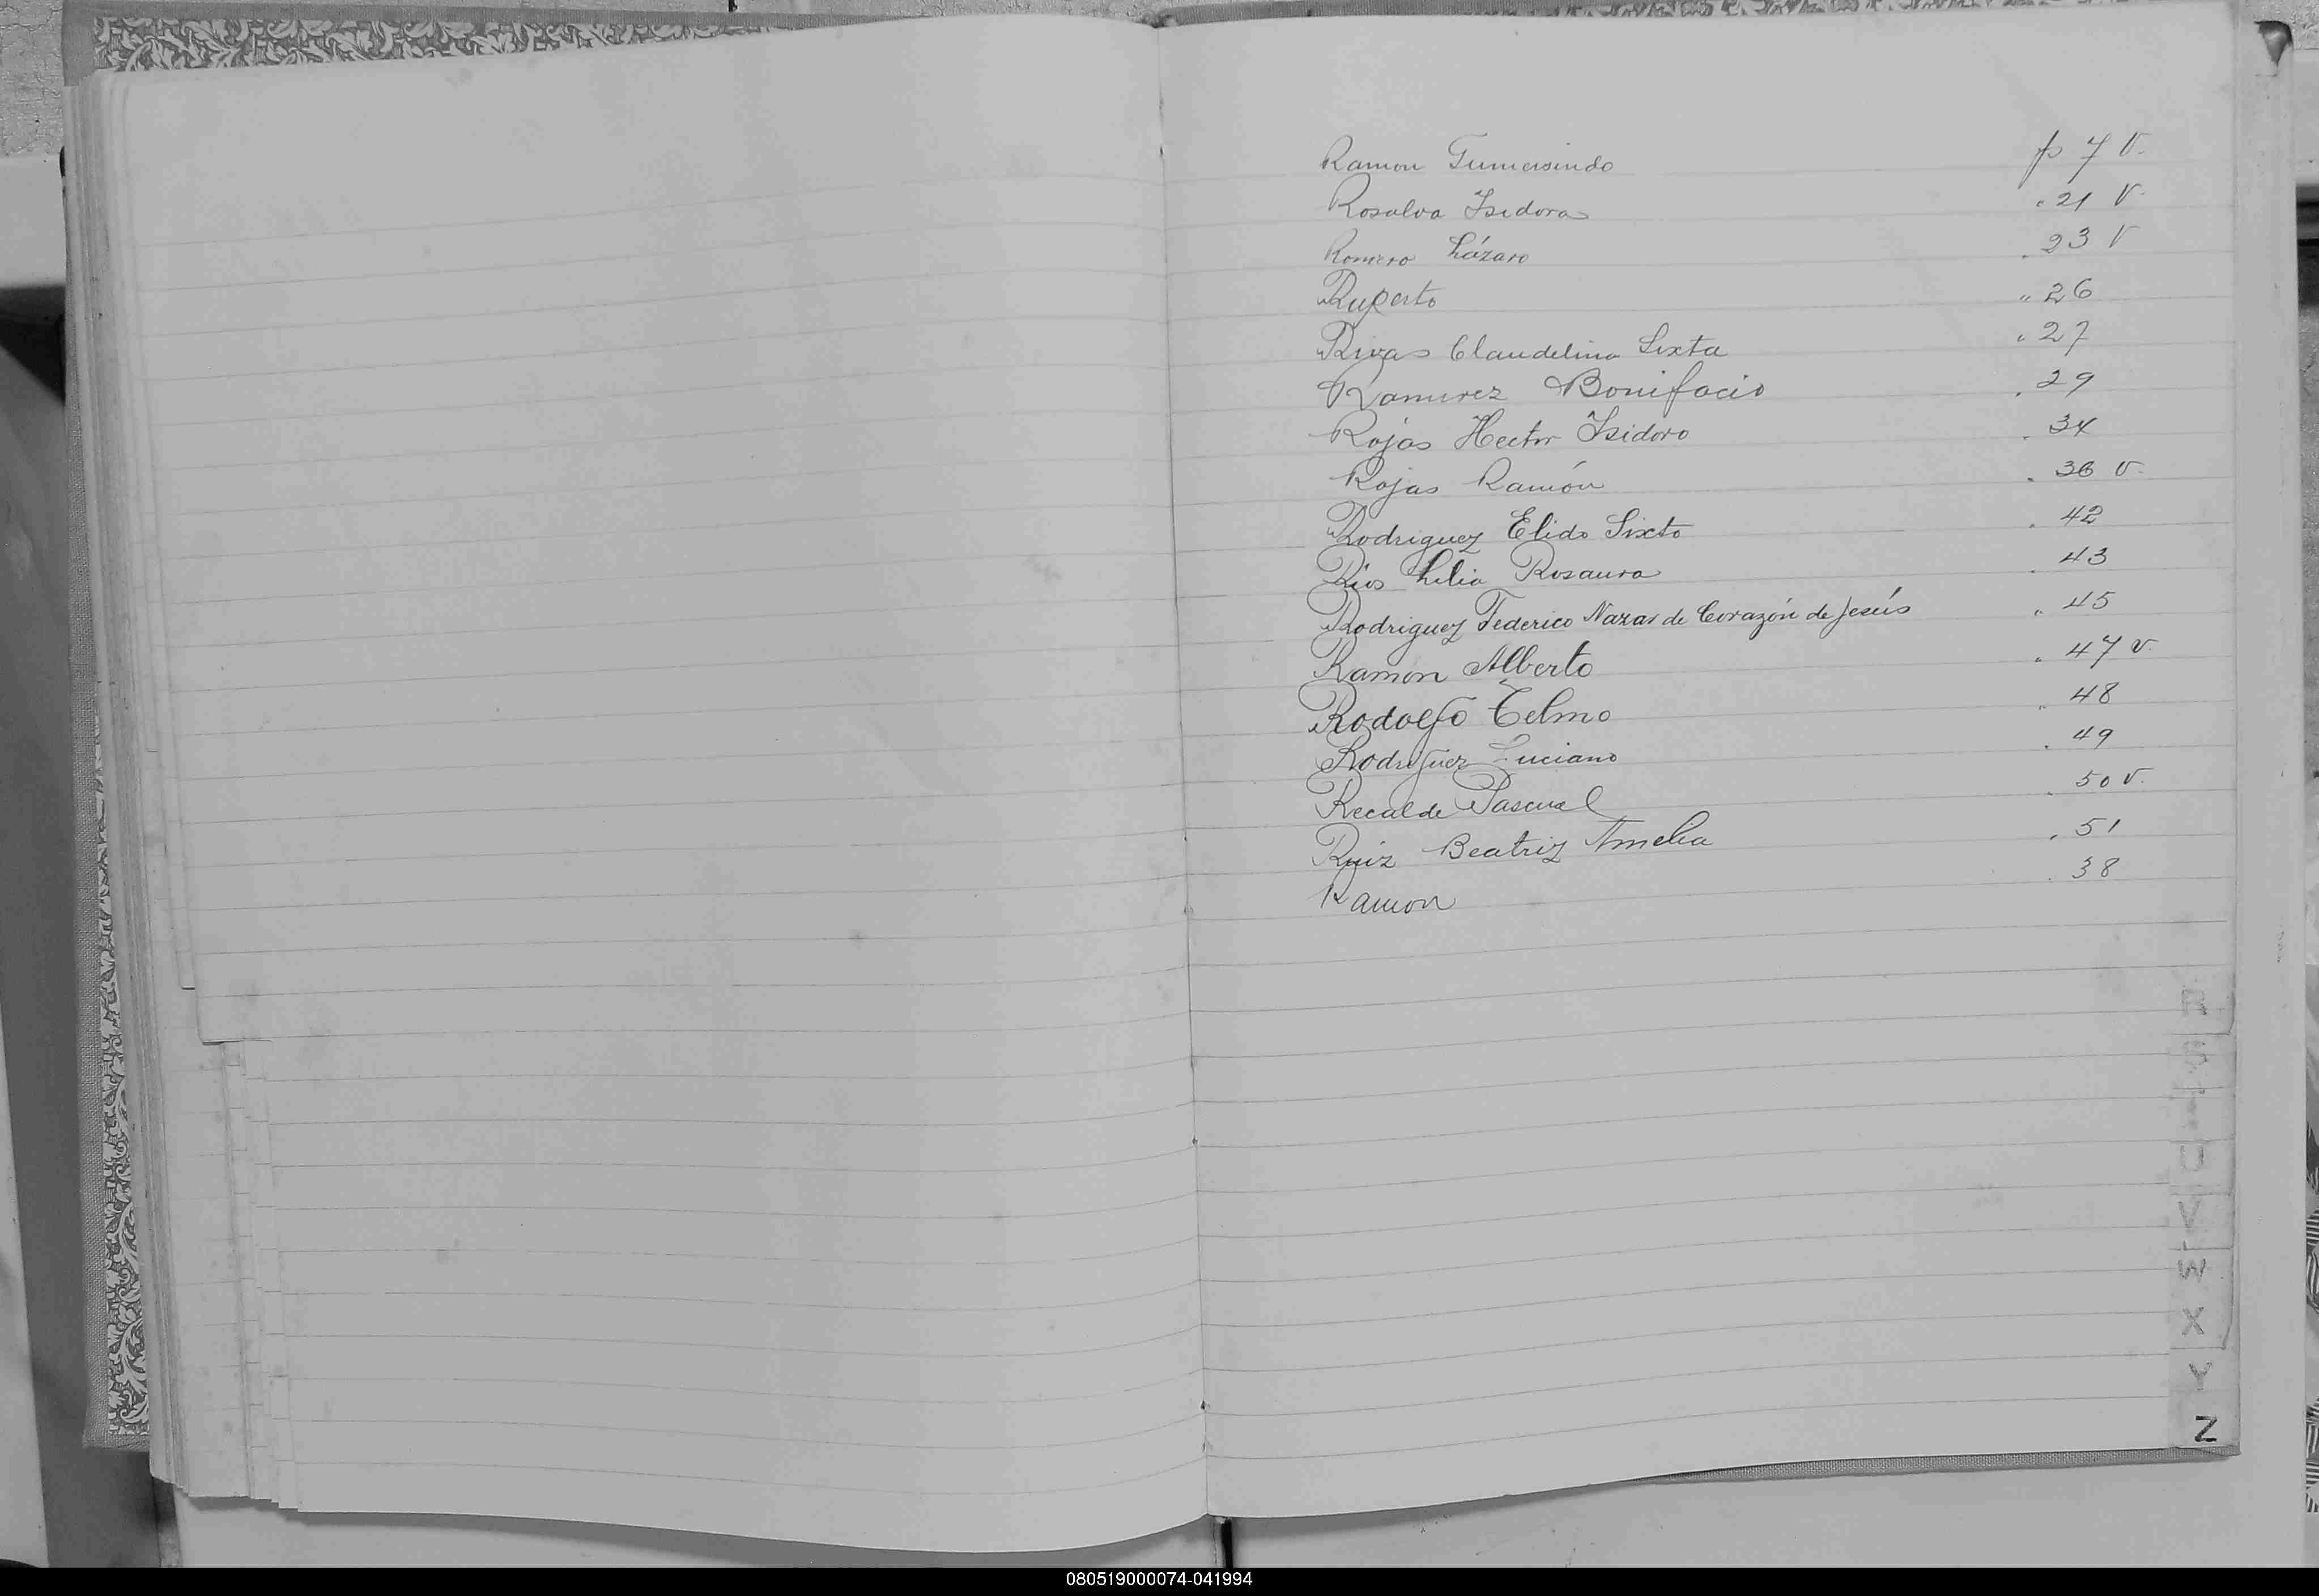 Ramon Gumersindo fo 7 V.
Rosalva Isidora " 21 V.
Romero Lázaro " 23 V
Ruperto " 26
Rivas Claudelina Sixta " 27
Ramirez Bonifacio " 29
Rojas Hector Isidoro " 34
Rojas Ramón " 36 V.
Rodriguez Elido Sixto " 42
Rios Lilia Rosaura " 43
Rodriguez Federico Nazar de Corazón de Jesús " 45
Ramon Alberto " 47 V.
Rodolfo Telmo " 48
Rodriguez Luciano " 49
Recalde Pascual " 50 V.
Ruiz Beatriz Amelia " 51
Ramon " 38
R
S
T
U
V
W
X
Y
Z
080519000074-041994